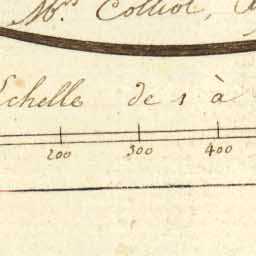 Mrs. Colliot,
Echelle de 1 à
200 300 400